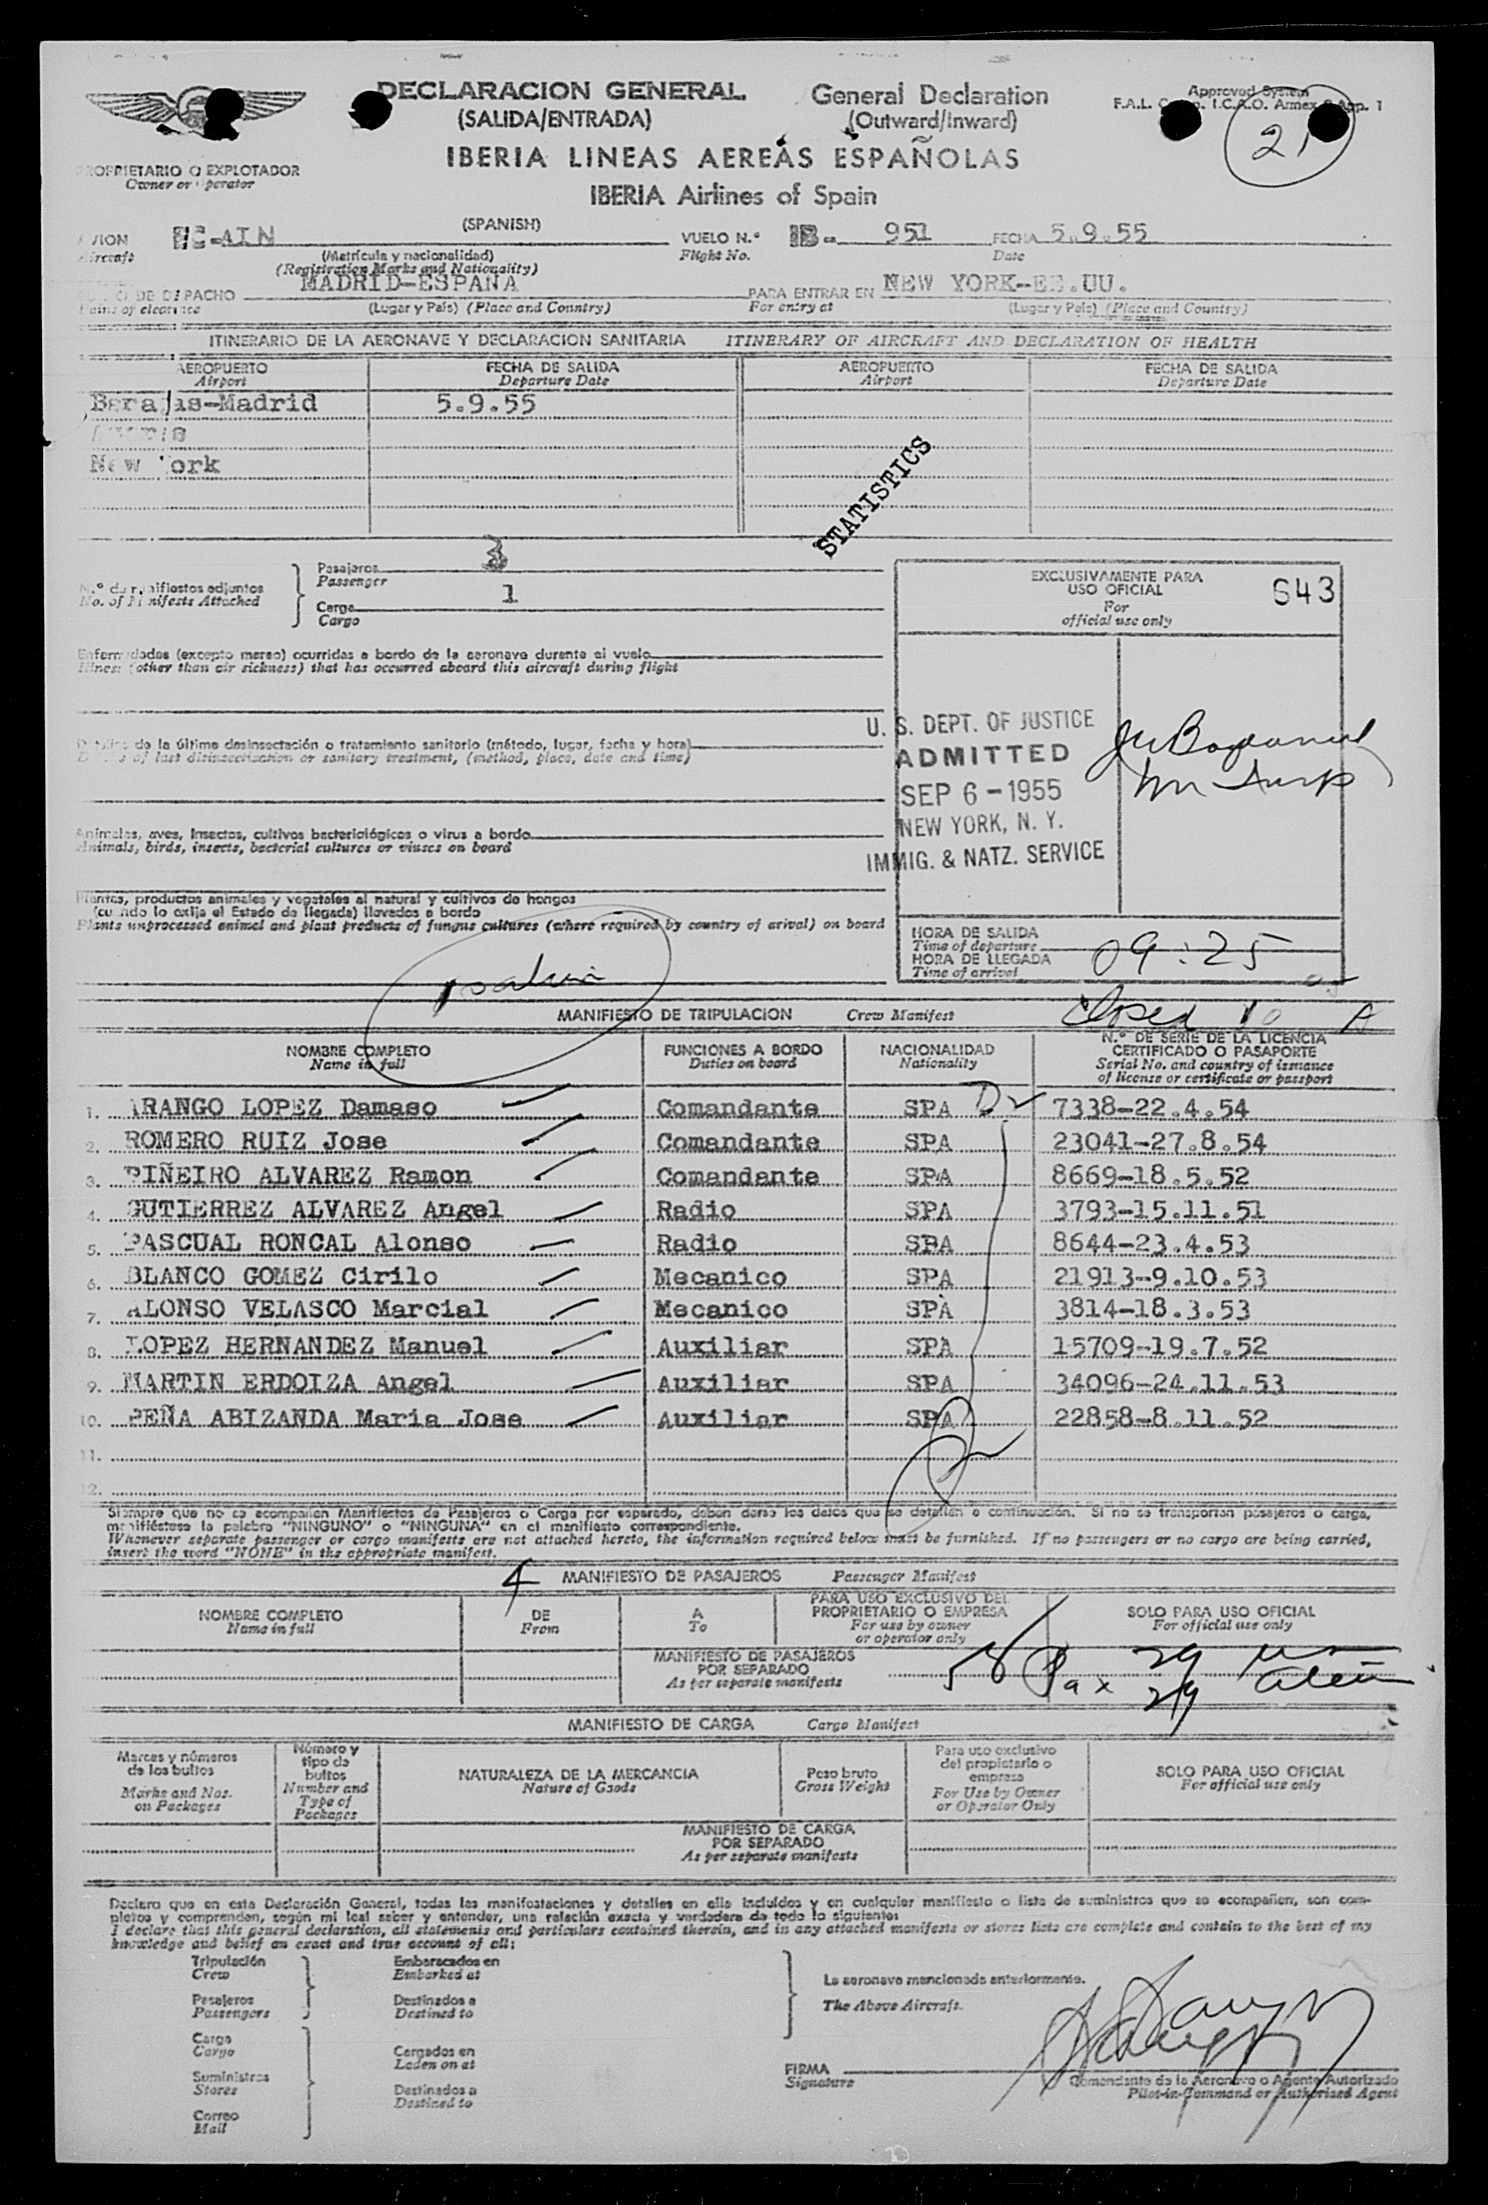 DECLARACION GENERAL General Declaration
(SALIDA/ENTRADA) (Outward/Inward)
Approved System
F.A.L. I.C.A.O. Annex App. 1
21
IBERIA LINEAS AEREAS ESPAÑOLAS
IBERIA Airlines of Spain
PROPRIETARIO O EXPLOTADOR
Owner or Operator
(SPANISH)
AVION EC-AIN VUELO N.º IB- 951 FECHA 5.9.55
Aircraft (Matrícula y nacionalidad) Flight No. Date
(Registration Marks and Nationality)
DE DESPACHO MADRID-ESPAÑA PARA ENTRAR EN NEW YORK-EE.UU.
of clearance (Lugar y País) (Place and Country) For entry at (Lugar y País) (Place and Country)
ITINERARIO DE LA AERONAVE Y DECLARACION SANITARIA ITINERARY OF AIRCRAFT AND DECLARATION OF HEALTH
AEROPUERTO FECHA DE SALIDA AEROPUERTO FECHA DE SALIDA
Airport Departure Date Airport Departure Date
Barajas-Madrid 5.9.55
New York
STATISTICS
N.º de manifiestos adjuntos
No. of Manifests Attached
Pasajeros 3
Passenger
Carga 1
Cargo
EXCLUSIVAMENTE PARA
USO OFICIAL
For
official use only
643
Enfermedades (excepto mareo) ocurridas a bordo de la aeronave durante el vuelo
Illness (other than air sickness) that has occurred aboard this aircraft during flight
Detalles de la última desinsectación o tratamiento sanitario (método, lugar, fecha y hora)
Details of last disinsectisation or sanitary treatment, (method, place, date and time)
U. S. DEPT. OF JUSTICE
ADMITTED
SEP 6 - 1955
NEW YORK, N. Y.
IMMIG. & NATZ. SERVICE
Animales, aves, insectos, cultivos bacteriológicos o virus a bordo
Animals, birds, insects, bacterial cultures or viuses on board
Plantas, productos animales y vegetales al natural y cultivos de hongos
(cuando lo exija el Estado de llegada) llevados a bordo
Plants unprocessed animel and plant products of fungus cultures (where required by country of arival) on board
HORA DE SALIDA
Time of departure
HORA DE LLEGADA 09:25
Time of arrival
Closed 10 A
MANIFIESTO DE TRIPULACION Crew Manifest
NOMBRE COMPLETO FUNCIONES A BORDO NACIONALIDAD N.º DE SERIE DE LA LICENCIA
Name in full Duties on board Nationality CERTIFICADO O PASAPORTE
Serial No. and country of issuance
of license or certificate or passport
1. ARANGO LOPEZ Damaso Comandante SPA 7338-22.4.54
2. ROMERO RUIZ Jose Comandante SPA 23041-27.8.54
3. PIÑEIRO ALVAREZ Ramon Comandante SPA 8669-18.5.52
4. GUTIERREZ ALVAREZ Angel Radio SPA 3793-15.11.51
5. PASCUAL RONCAL Alonso Radio SPA 8644-23.4.53
6. BLANCO GOMEZ Cirilo Mecanico SPA 21913-9.10.53
7. ALONSO VELASCO Marcial Mecanico SPA 3814-18.3.53
8. LOPEZ HERNANDEZ Manuel Auxiliar SPA 15709-19.7.52
9. MARTIN ERDOIZA Angel Auxiliar SPA 34096-24.11.53
10. PEÑA ABIZANDA Maria Jose Auxiliar SPA 22858-8.11.52
11.
12.
Siempre que no se acompañen Manifiestos de Pasajeros o Carga por separado, deben darse los datos que se detallan a continuación. Si no se transportan pasajeros o carga,
manifiéstese la palabra "NINGUNO" o "NINGUNA" en el manifiesto correspondiente.
Whenever separate passenger or cargo manifests are not attached hereto, the information required below must be furnished. If no passengers or no cargo are being carried,
insert the word "NONE" in the appropriate manifest.
4 MANIFIESTO DE PASAJEROS Passenger Manifest
NOMBRE COMPLETO DE A PARA USO EXCLUSIVO DEL SOLO PARA USO OFICIAL
Name in full From To PROPRIETARIO O EMPRESA For official use only
For use by owner
or operator only
MANIFIESTO DE PASAJEROS
POR SEPARADO
As per separate manifests
58 Pax 29 US
29 Alien
MANIFIESTO DE CARGA Cargo Manifest
Marcas y números
de los bultos
Marks and Nos.
on Packages
Número y
tipo de
bultos
Number and
Type of
Packages
NATURALEZA DE LA MERCANCIA
Nature of Goods
Peso bruto
Gross Weight
Para uso exclusivo
del propietario o
empresa
For Use by Owner
or Operator Only
SOLO PARA USO OFICIAL
For official use only
MANIFIESTO DE CARGA
POR SEPARADO
As per separate manifests
Declaro que en esta Declaración General, todas las manifestaciones y detalles en ella incluídos y en cualquier manifiesto o lista de suministros que se acompañen, son com-
pletos y comprenden, según mi leal saber y entender, una relación exacta y verdadera de todo lo siguiente:
I declare that this general declaration, all statements and particulars contained therein, and in any attached manifests or stores lists are complete and contain to the best of my
knowledge and belief an exact and true account of all:
Tripulación Embaracados en
Crew Embarked at
La aeronave mencionada anteriormente.
Pasajeros Destinados a
Passengers Destined to
The Above Aircraft.
Cargo
Cargo
Cargados en
Laden on at
Suministros
Stores
Destinados a
Destined to
Correo
Mail
FIRMA
Signature
Comandante de la Aeronave o Agente Autorizado
Pilot-in-Command or Authorised Agent